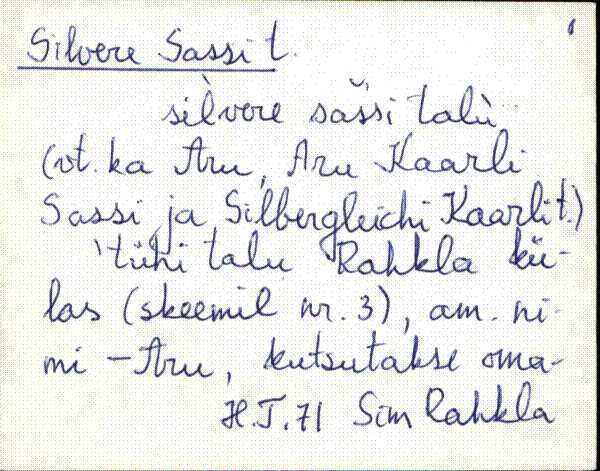 Silvere Sassi t.
silvere sässi talù
(vt. ka Aru, Aru Kaarli
Sassi ja Silbergleichi Kaarli t.)
'tühi talu Rahkla kü-
las (skeemil nr. 3), am. ni-
mi - Aru, kutsutakse oma-
H.J.71 Sim Rahkla